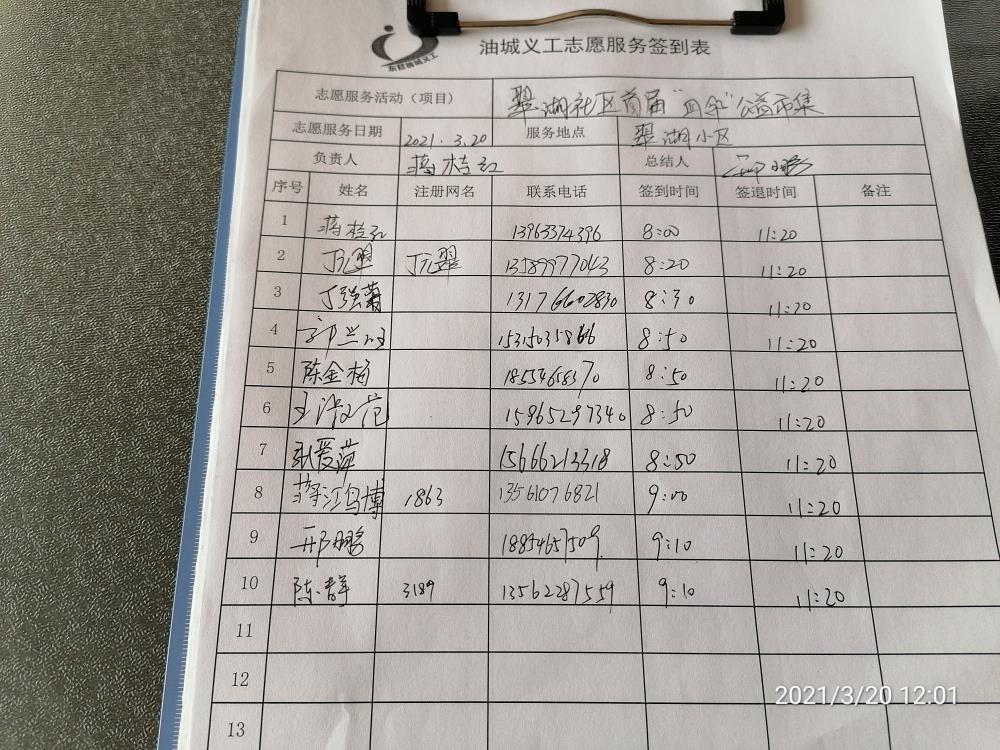 油城义工志愿服务签到表
东营油城义工
志愿服务活动（项目） 翠湖社区首届"四余"公益市集
志愿服务日期 2021.3.20 服务地点 翠湖小区
负责人 蒋桂红 总结人 邢鹏
序号 姓名 注册网名 联系电话 签到时间 签退时间 备注
1 蒋桂红 13963374396 8:00 11:20
2 丁元翠 丁元翠 13589977043 8:20 11:20
3 丁强 13176602830 8:30 11:20
4 郭兰 15315035866 8:50 11:20
5 陈金杨 18554658370 8:50 11:20
6 15965297340 8:50 11:20
7 张爱萍 15666213318 8:50 11:20
8 蒋江鸿博 1863 13561076821 9:00 11:20
9 邢鹏 18854657509 9:10 11:20
10 陈群 3189 13562287559 9:10 11:20
11
12
13
2021/3/20 12:01